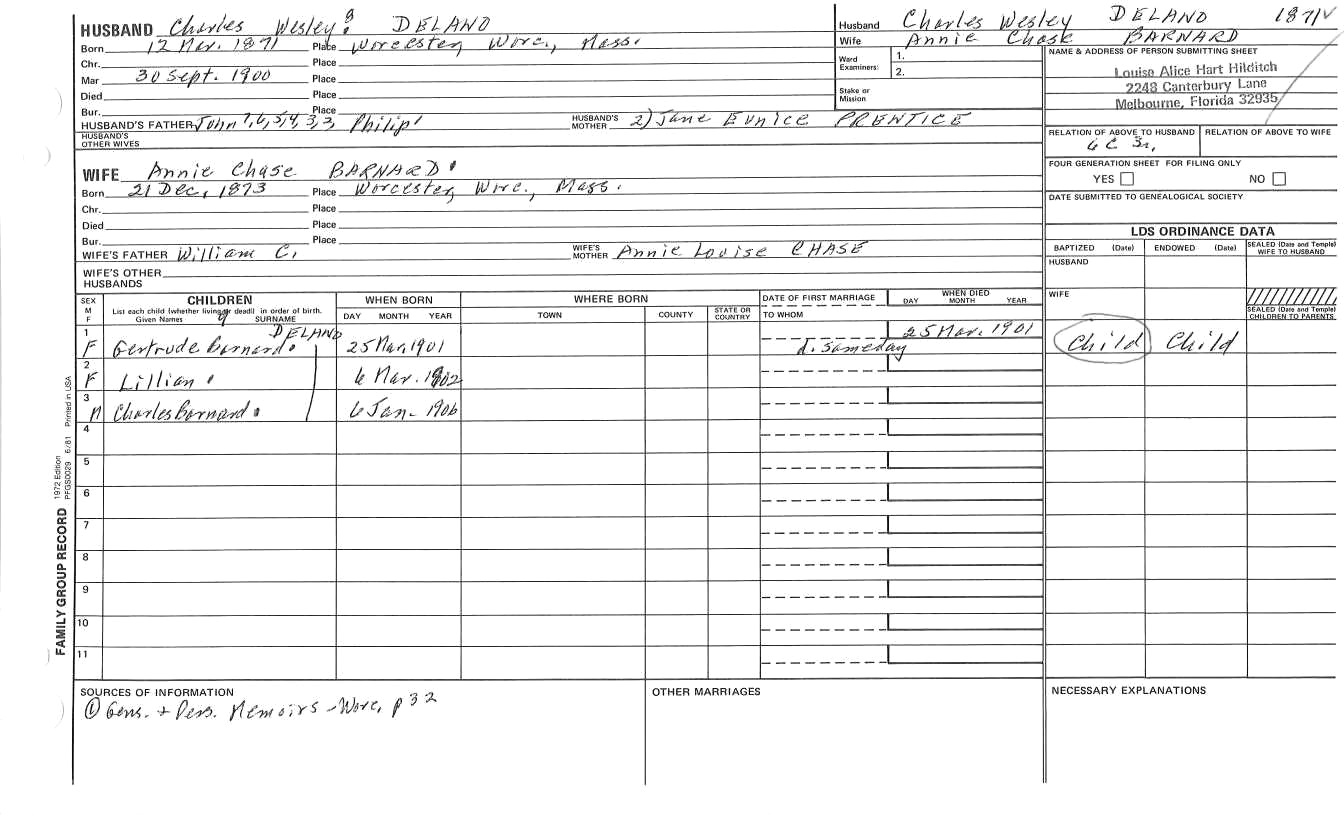 HUSBAND Charles Wesley 8 DELAND
Born 12 Mar. 1871 Place Worcester, Worc., Mass.
Chr. Place
Mar 30 Sept. 1900 Place
Died Place
Bur. Place
HUSBAND'S FATHER John 7,6,5,4,3,2, Philip 1 HUSBAND'S MOTHER 2) Jane Eunice PRENTICE
HUSBAND'S OTHER WIVES
WIFE Annie Chase BARNARD
Born 21 Dec, 1873 Place Worcester, Worc., Mass.
Chr. Place
Died Place
Bur. Place
WIFE'S FATHER William C. WIFE'S MOTHER Annie Louise CHASE
WIFE'S OTHER HUSBANDS
Husband Charles Wesley DELAND 1871
Wife Annie Chase BARNARD
Ward Examiners: 1.
2.
Stake or Mission
NAME & ADDRESS OF PERSON SUBMITTING SHEET
Louise Alice Hart Hilditch
2248 Canterbury Lane
Melbourne, Florida 32935
RELATION OF ABOVE TO HUSBAND RELATION OF ABOVE TO WIFE
6 C 3r,
FOUR GENERATION SHEET FOR FILING ONLY
YES NO
DATE SUBMITTED TO GENEALOGICAL SOCIETY
LDS ORDINANCE DATA
BAPTIZED (Date) ENDOWED (Date) SEALED (Date and Temple) WIFE TO HUSBAND
HUSBAND
WIFE
SEALED (Date and Temple) CHILDREN TO PARENTS
SEX M F
CHILDREN
List each child (whether living or dead) in order of birth.
Given Names 9 SURNAME
WHEN BORN
DAY MONTH YEAR
WHERE BORN
TOWN COUNTY STATE OR COUNTRY
DATE OF FIRST MARRIAGE
TO WHOM
WHEN DIED
DAY MONTH YEAR
1 F Gertrude Barnard DELAND 25 Mar, 1901 d. sameday 25 Mar. 1901 Child Child
2 F Lillian 6 Mar. 1902
3 M Charles Barnard 6 Jan- 1906
4
5
6
7
8
9
10
11
SOURCES OF INFORMATION
① Gens. + Pers. Memoirs - Worc, p 32
OTHER MARRIAGES
NECESSARY EXPLANATIONS
FAMILY GROUP RECORD 1972 Edition PFGS0029 6/81 Printed in USA